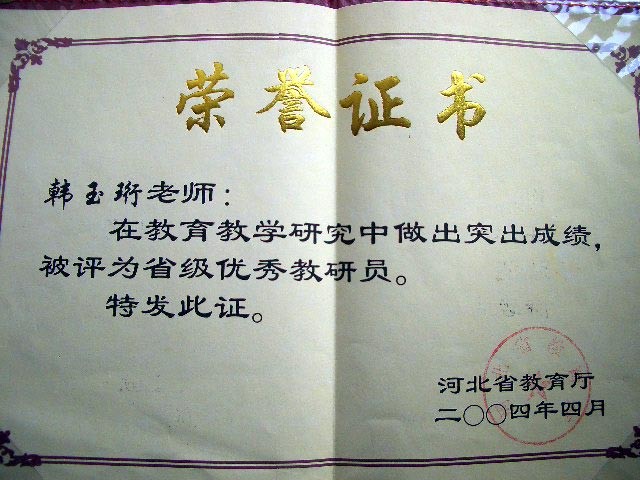 荣誉证书
韩玉珩老师：
在教育教学研究中做出突出成绩，
被评为省级优秀教研员。
特发此证。
河北省教育厅
二〇〇四年四月